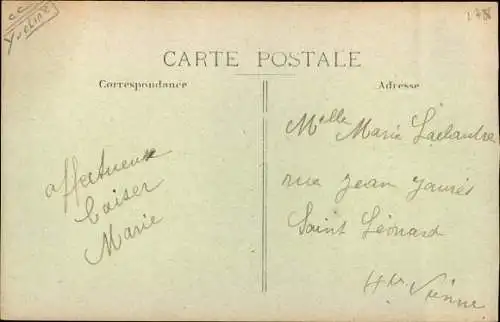 CC
Yvelines
CARTE POSTALE
Correspondance
Adresse
affectueux
baiser
Marie
Melle Marie
rue Jean Jaurès
Saint Léonard
Hte Vienne